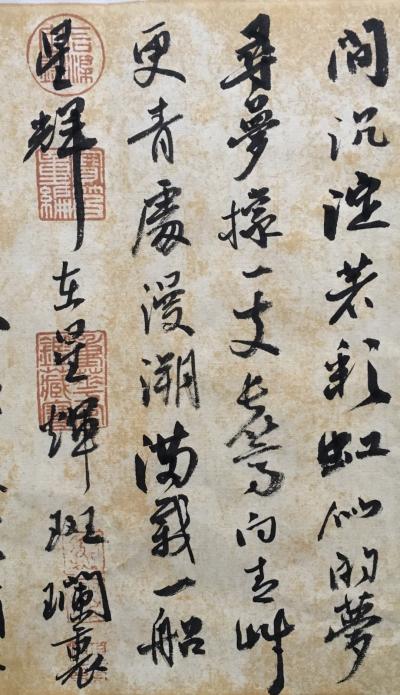 間沉淀着彩虹似的夢
尋夢撐一支長篙向青草
更青處漫溯滿載一船
星輝在星輝斑斕裏